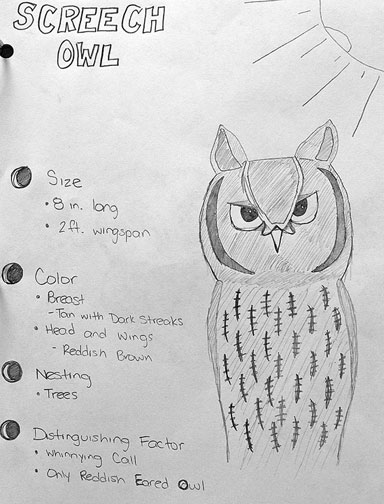 SCREECH
OWL
Size
• 8 in. long
• 2 ft. wingspan
Color
• Breast
- Tan with Dark Streaks
• Head and Wings
- Reddish Brown
Nesting
• Trees
Distinguishing Factor
• Whinnying Call
• Only Reddish Eared Owl